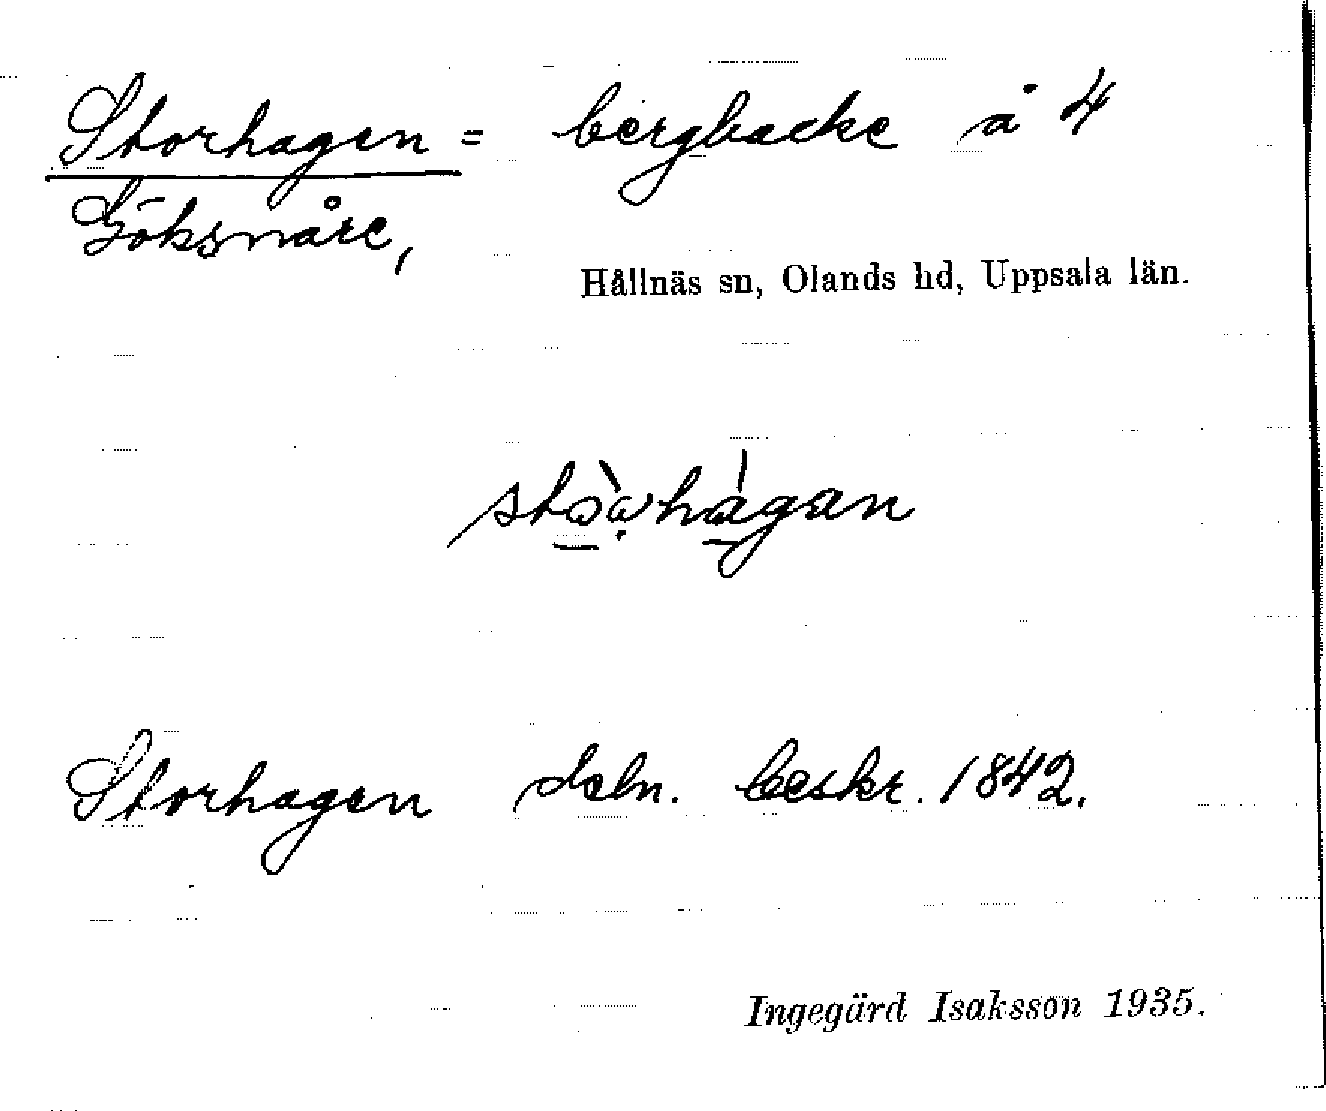 Storhagen = bergbacke å 4
Göksnåre,
Hållnäs sn, Olands hd, Uppsala län.
Storhagen deln. beskr. 1842.
Ingegärd Isaksson 1935.